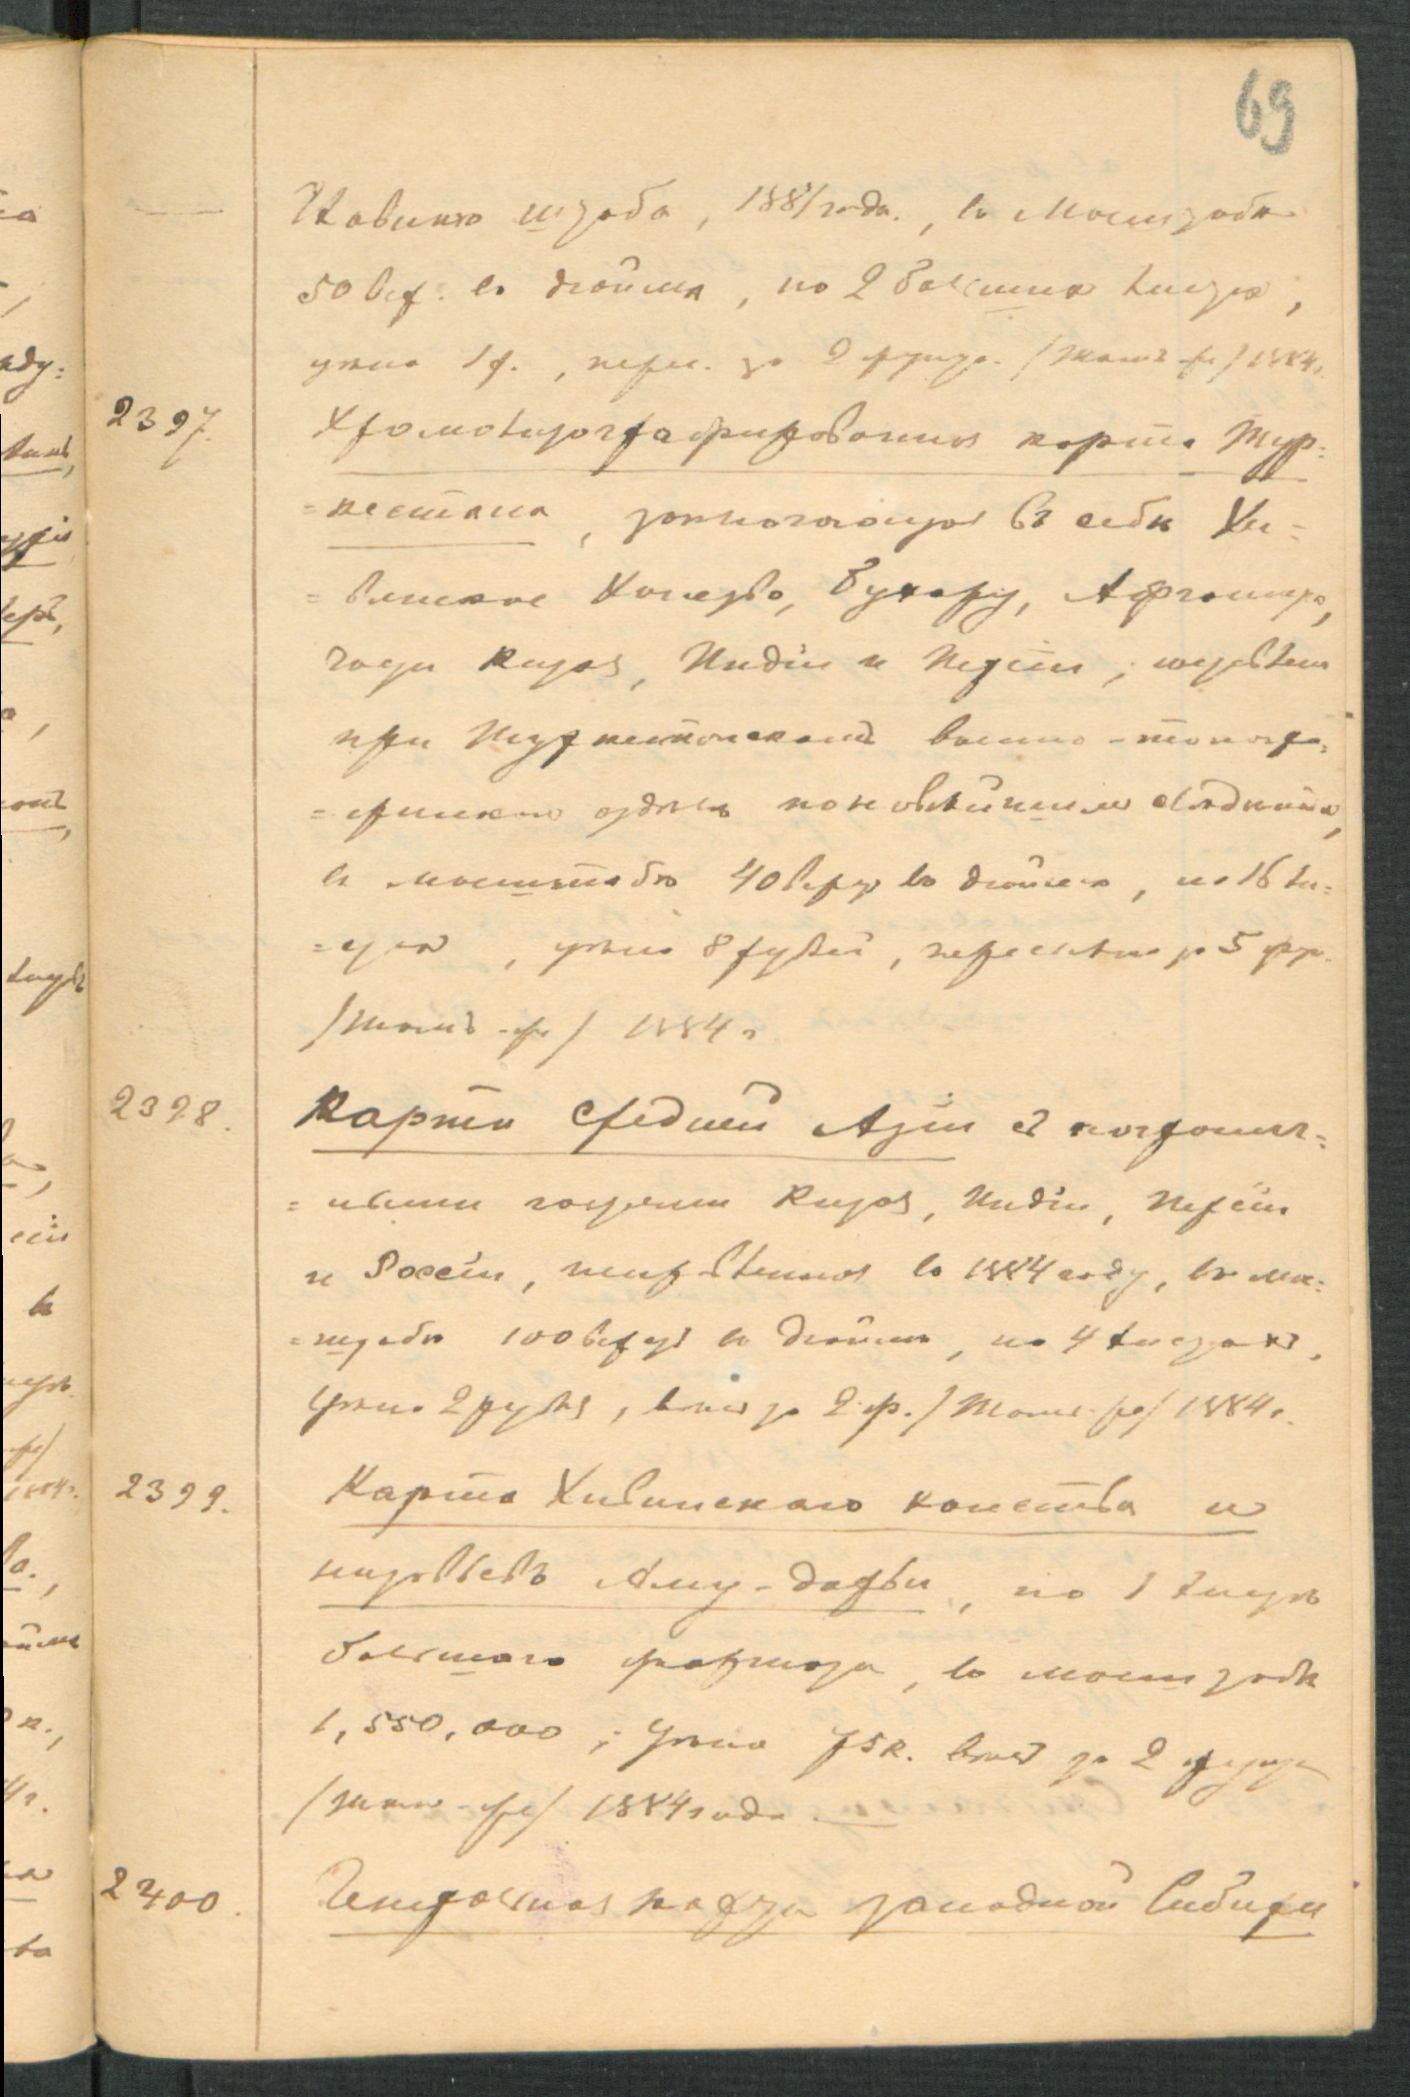 69
Главнаго штаба, 1881 года., въ Масштабѣ
50 вер. въ дюймѣ, на 2 большихъ листахъ,
цѣна 1 р., перес. за 2 фунта. /Тамъ-же/ 1884 г.
2397. Хромолитографированная карта Тур=
=кестана, заключающая въ себѣ Хи=
=винское Ханство, Бухару, Афганист.,
части Китая, Индіи и Персіи; составлен
при Туркестанскомъ военно-топогра=
=фическомъ отдѣлѣ по новѣйшимъ свѣдѣніямъ,
въ масштабѣ 40 верстъ въ дюймѣ, на 16 ли=
=стахъ, цѣна 8 рублей, пересылка за 5 фун.
/Тамъ-же/ 1884 г.
2398. Карта Средней Азіи съ погранич=
=ными частями Китая, Индіи, Персіи
и Россіи, исправленная въ 1884 году, въ ма=
=штабѣ 100 верстъ въ дюймѣ, на 4 листахъ,
Цѣна 2 рубля, вѣсъ за 2 ф. /Тамъ-же/ 1884 г.
2399. Карта Хивинскаго ханства и
низовьевъ Аму-дарьи, на 1 листѣ
большаго формата, въ масштабѣ
1,550,000; Цѣна 75 к. вѣсъ за 2 фунта
/тамъ-же/ 1884 года.
2400. Генеральная карта западной Сибири